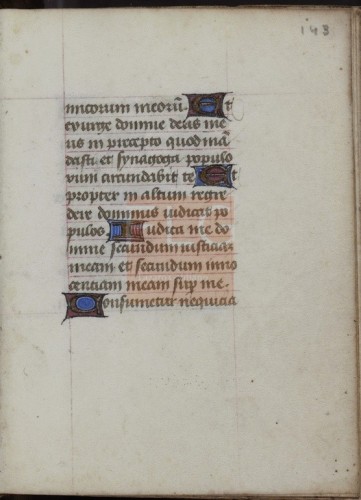 143
imicorum meorū. Et
exurge domine deus me
us in precepto quod mā
dasti et synagoga populo
rum circundabit te Et
propter in altum regre
dere dominus iudicat po
pulos Iudica me do
mine secundum iusticiam
meam et secundum inno
centiam meam sup me.
Consumetur nequicia